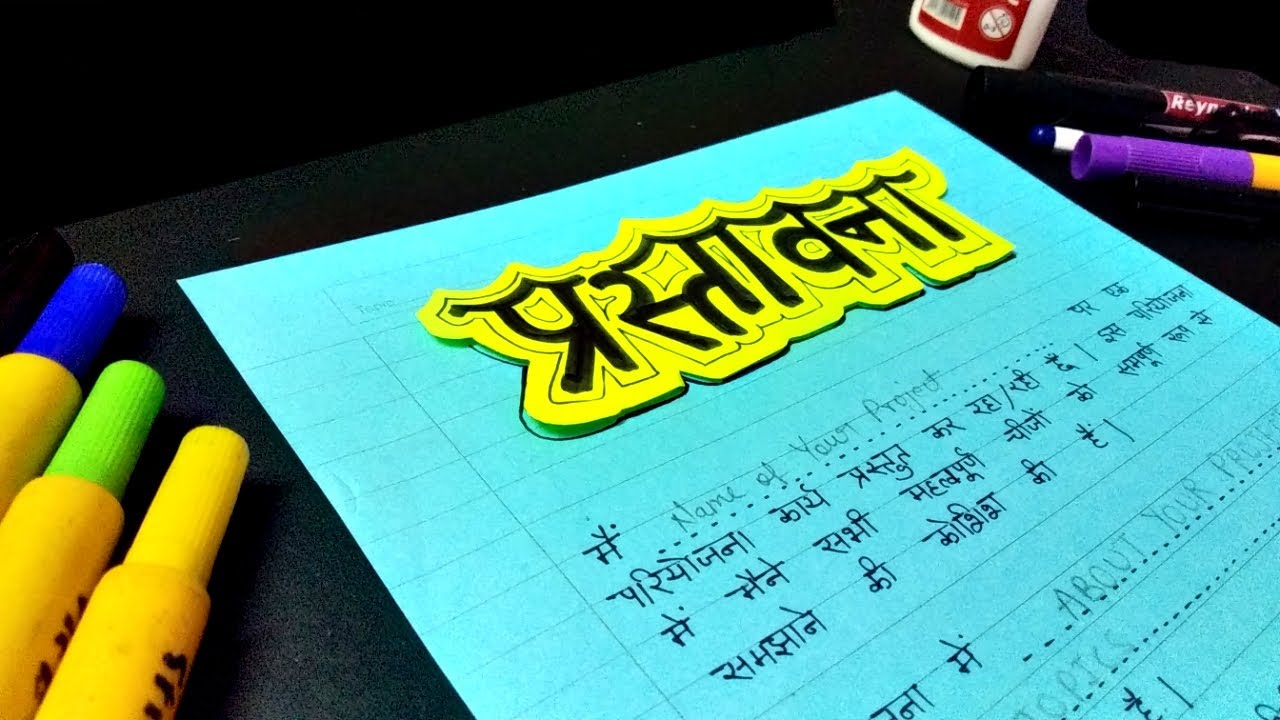 प्रस्तावना
Topic
मैं Name of Your Project पर एक
परियोजना कार्य प्रस्तुत कर रहा/रही हूँ। इस परियोजना
में मैंने सभी महत्वपूर्ण चीजों को सम्पूर्ण रूप से
समझाने की कोशिश की है।
में ABOUT YOUR
TOPICS है।